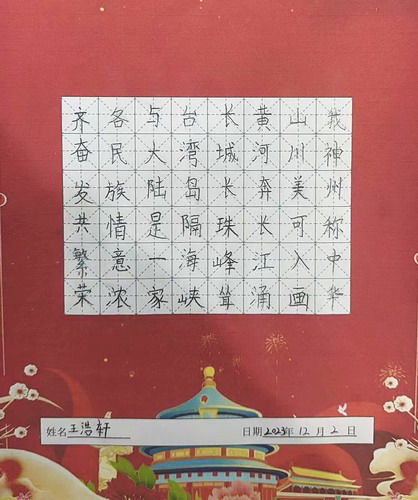 我神州称中华
山川美可入画
黄河奔长江涌
长城长珠峰耸
台湾岛隔海峡
与大陆是一家
各民族情意浓
齐奋发共繁荣
姓名王浩轩 日期2023年12月2日